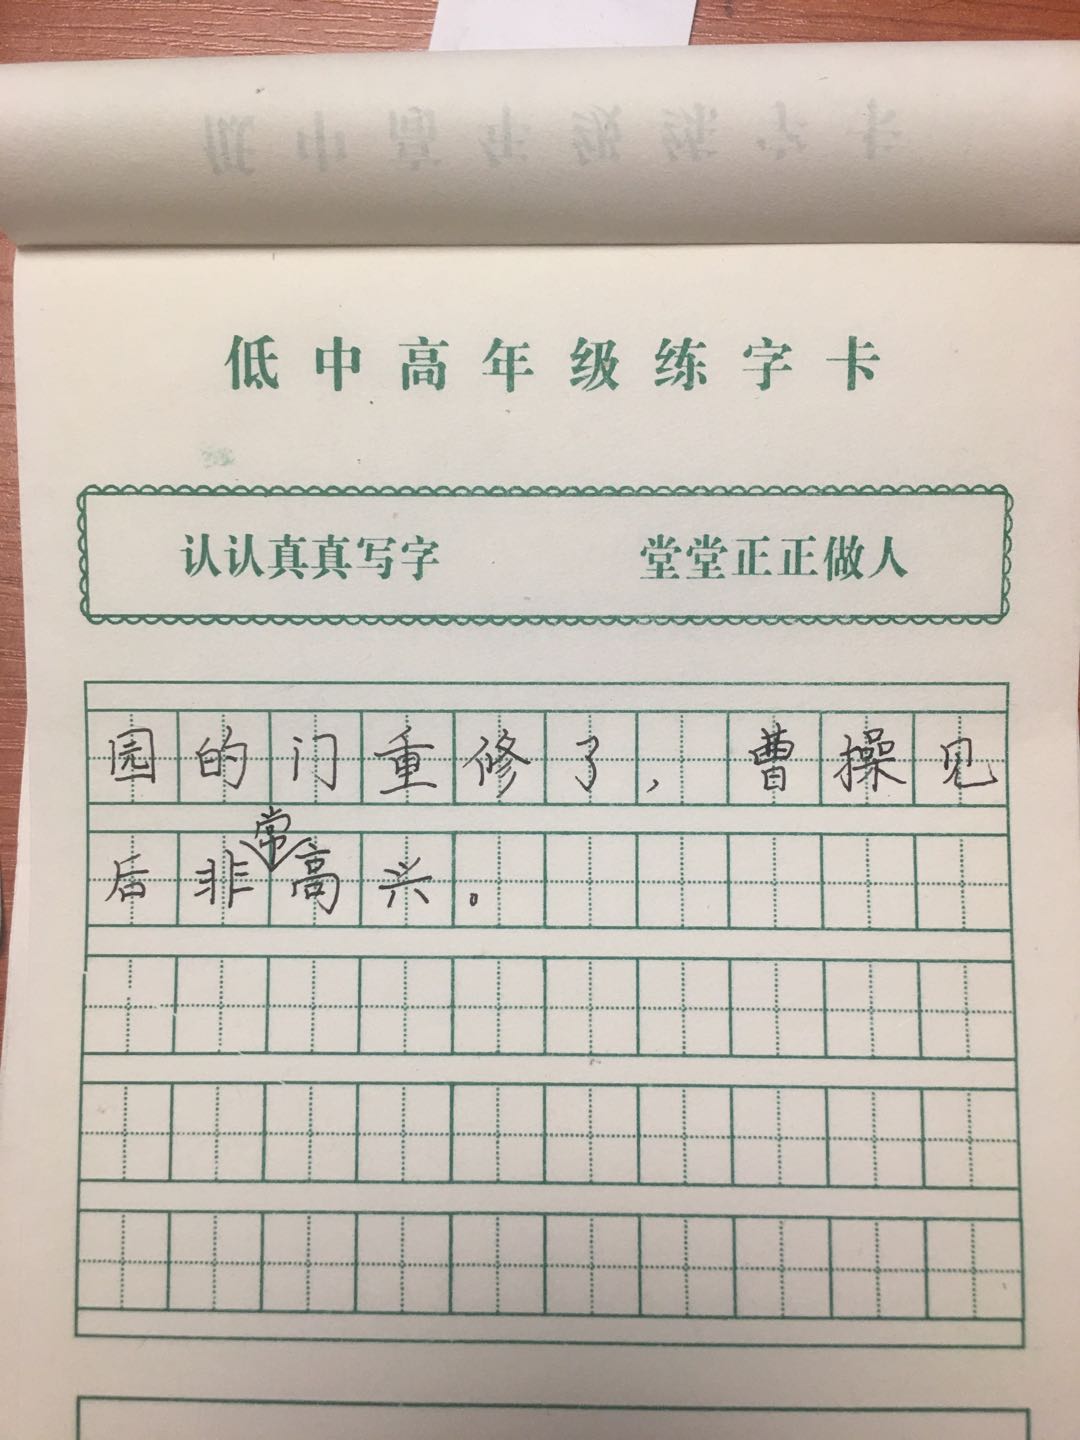 低中高年级练字卡
认认真真写字 堂堂正正做人
园的门重修了，曹操见
后非常高兴。